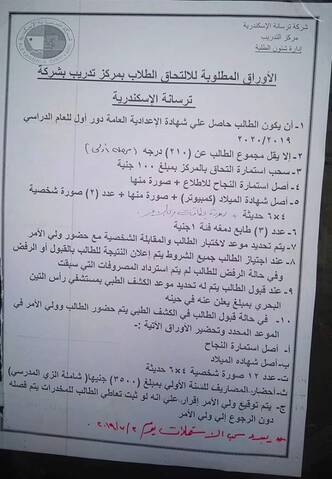 شركة ترسانة الإسكندرية
مركز التدريب
إدارة شئون الطلبة
الأوراق المطلوبة للالتحاق الطلاب بمركز تدريب بشركة
ترسانة الإسكندرية
١- أن يكون الطالب حاصل علي شهادة الإعدادية العامة دور أول للعام الدراسي
٢٠٢٠/٢٠١٩
٢- إلا يقل مجموع الطالب عن (٢١٠) درجه
٣- سحب استمارة التحاق بالمركز بمبلغ ١٠٠ جنية
٤- أصل استمارة النجاح للاطلاع + صورة منها
٥- أصل شهادة الميلاد (كمبيوتر) + صورة منها + عدد (٢) صورة شخصية
٤×٦ حديثة +
٦- عدد (٣) طابع دمغه فئة ١جنية
٧- يتم تحديد موعد لاختبار الطالب والمقابلة الشخصية مع حضور ولي الأمر
٨- عند اجتياز الطالب جميع الشروط يتم إعلان النتيجة للطالب بالقبول أو الرفض
وفي حالة الرفض للطالب لم يتم استرداد المصروفات التي سبقت
٩- عند قبول الطالب يتم له تحديد موعد الكشف الطبي بمستشفي رأس التين
البحري بمبلغ يعلن عنه في حينه
١٠- في حالة قبول الطالب في الكشف الطبي يتم حضور الطالب وولي الأمر في
الموعد المحدد وتحضير الأوراق الآتية :-
أ- أصل استمارة النجاح
ب- أصل شهادة الميلاد
ت- عدد ١٢ صورة شخصية ٤×٦ حديثة
ث- أحضار المصاريف للسنة الأولي بمبلغ (٣٥٠٠) جنيها (شاملة الزي المدرسي)
ج- يتم توقيع ولي الأمر إقرار علي انه لو ثبت تعاطي الطالب للمخدرات يتم فصله
دون الرجوع إلي ولي الأمر
سحب الاستمارات يوم ٢٠١٩/٧/٢